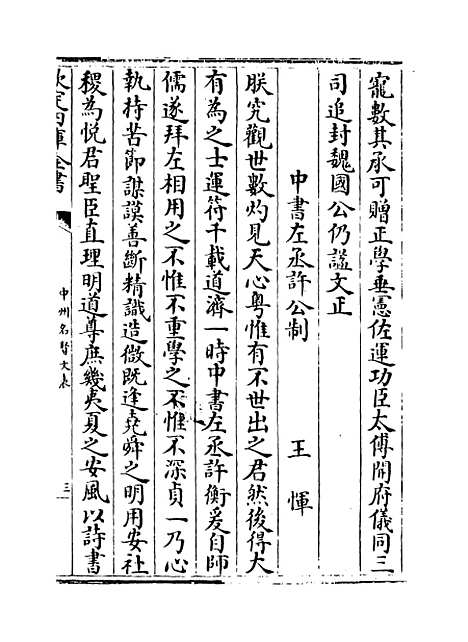 寵數其承可贈正學垂憲佐運功臣太傅開府儀同三
司追封魏國公仍諡文正
中書左丞許公制　王惲
朕究觀世數灼見天心粤惟有不世出之君然後得大
有為之士運符千載道濟一時中書左丞許衡爰自師
儒遂拜左相用之不惟不重學之不惟不深貞一乃心
執持苦節謀謨善斷精識造微既逢堯舜之明用安社
稷為悦君聖臣直理明道尊庶幾夷夏之安風以詩書
欽定四庫全書
中州名賢文表
三